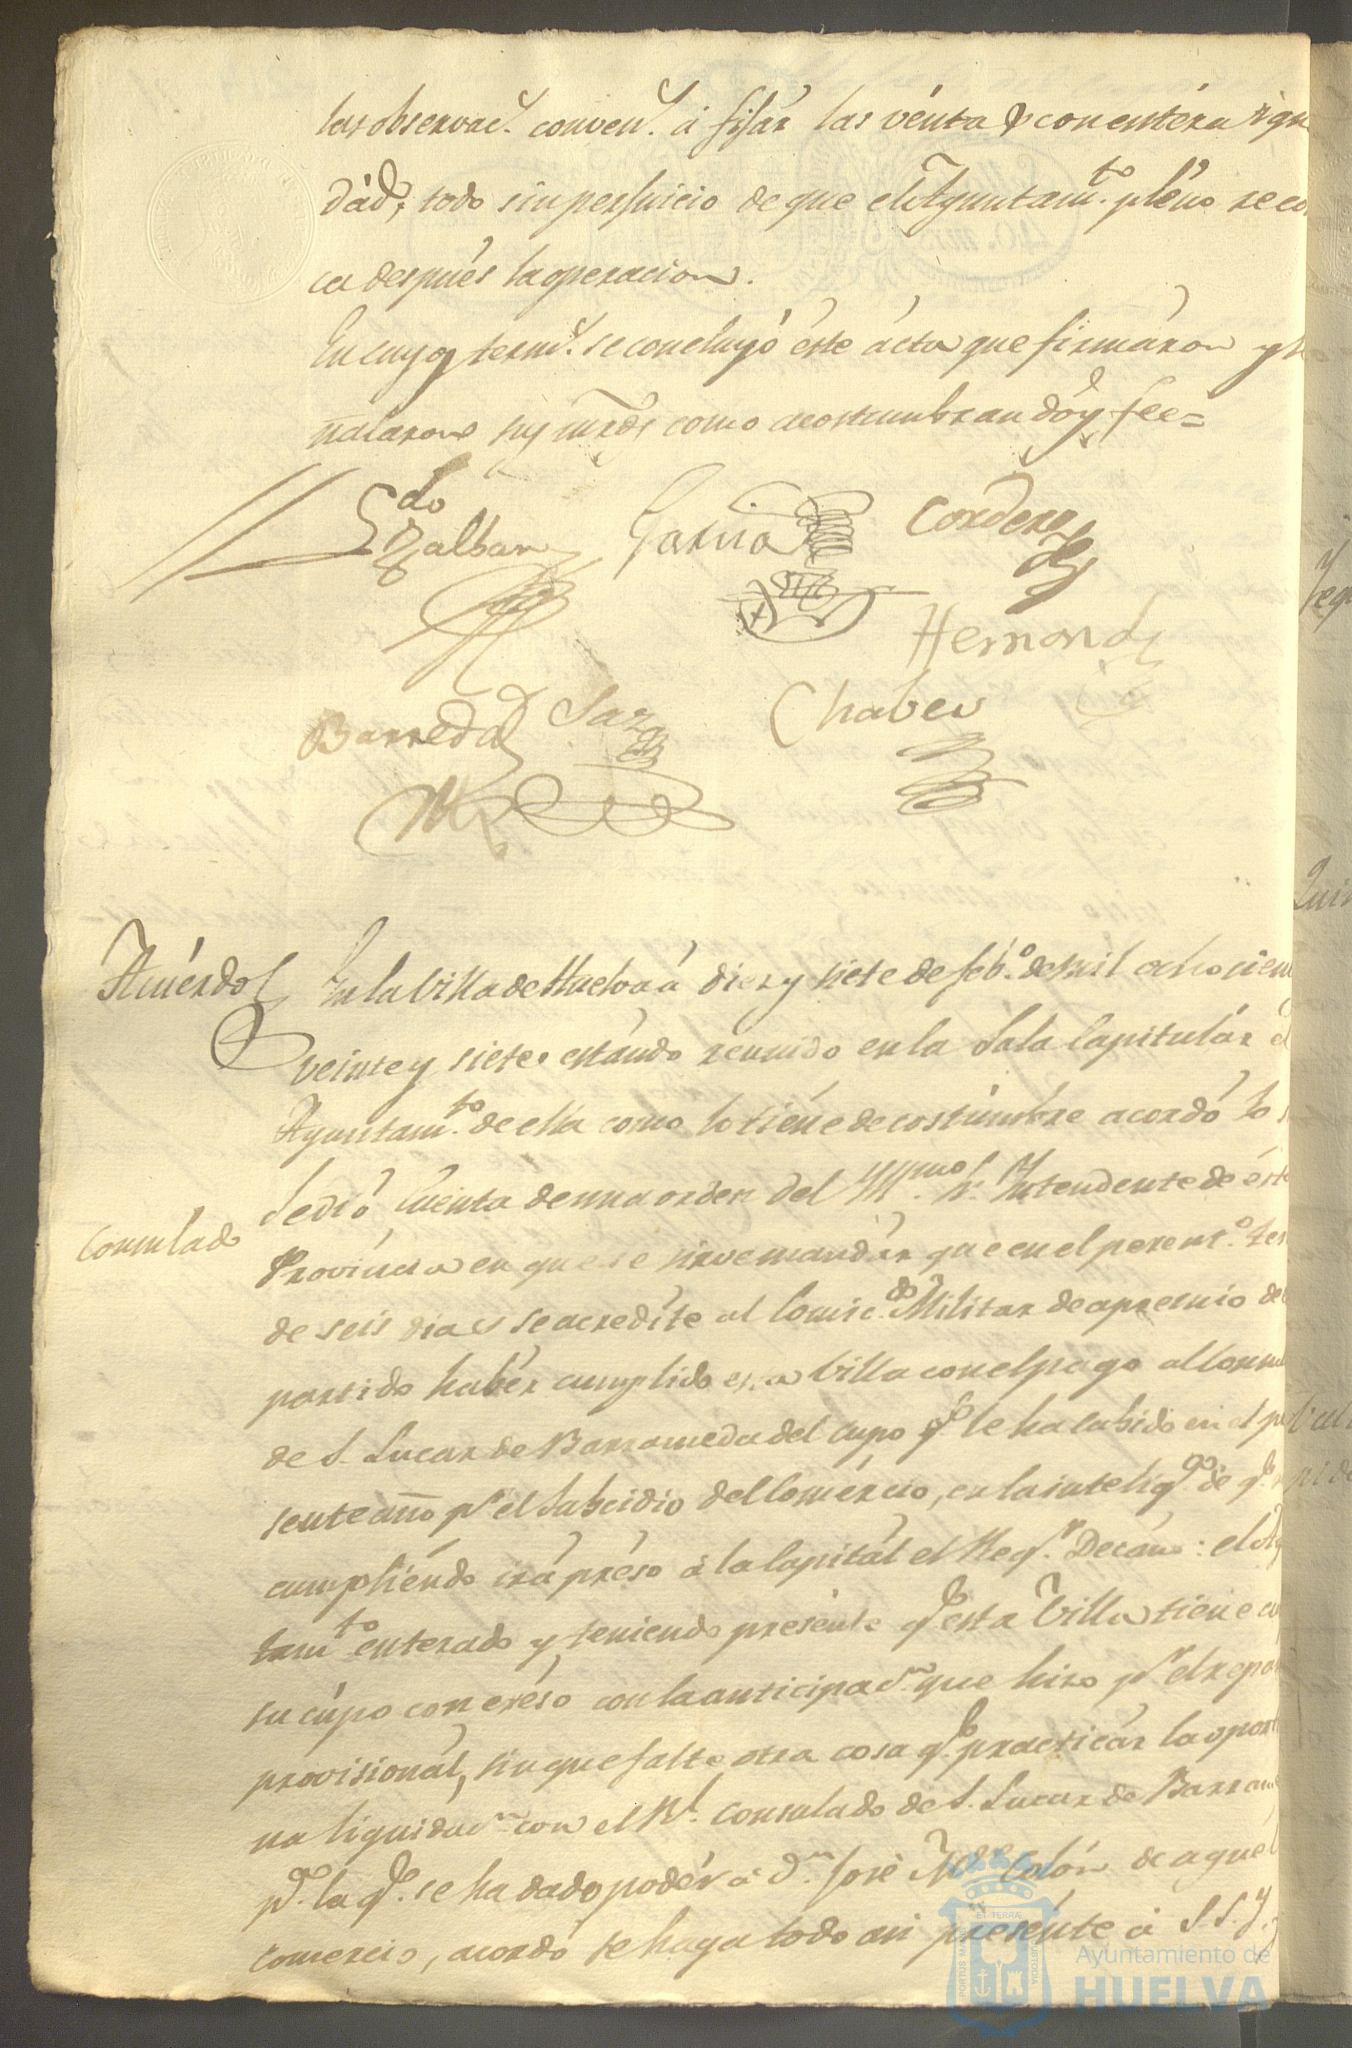 las observac.s conven.s á fijár las vénta y con entéra
dád, todo sin perjuicio de que el Ayuntam.to pléno
ca despues la operacion.
En cuyos térm.s se concluyó éste ácta que firmáron y
ñaláron sus mrds como acostumbran dóy fee=
Lcdo Garcia Cordero
Hernandz
Barreda Chabes
Acuérdo En la Villa de Huelva á diez y siete de feb.o de mil ochocien
veinte y siete estándo reunido en la Sala Capitulár el
Ayuntam.to de ella como lo tiéne de costúmbre acordó lo
Se dió Cuénta de una orden del Yll.mo S.r Yntendente de ésta
Consulado
Provincia en que se sirve mandár que en el perent.o
de seis dias se acredíte al Comic.do Militar de apremio de
partido habér cumplido esa Villa con el pago al
de S. Lucar de Barrameda del cupo q.e le ha cabido en el
sente año p.r el Subcidio del Comércio, en la inteligª de q.e
cumpliéndo irá préso á la Capitál el Reg.r Decáno: el
tam.to enterado y teniendo presénte q.e esta Villa tiene
su cúpo con eréso con la anticipac.n que hizo p.r el
provisionál, sin que falte otra cosa q.e practicár la
na liquidac.n con el Rl. Consulado de S. Lucar de
p.a la q.e se ha dado podér á D.n José Colón de aquél
comercio, acordó se haga todo así presénte á S.S.Y.
PORTUS MARIS ET TERRÆ CUSTODIA
Ayuntamiento de
HUELVA